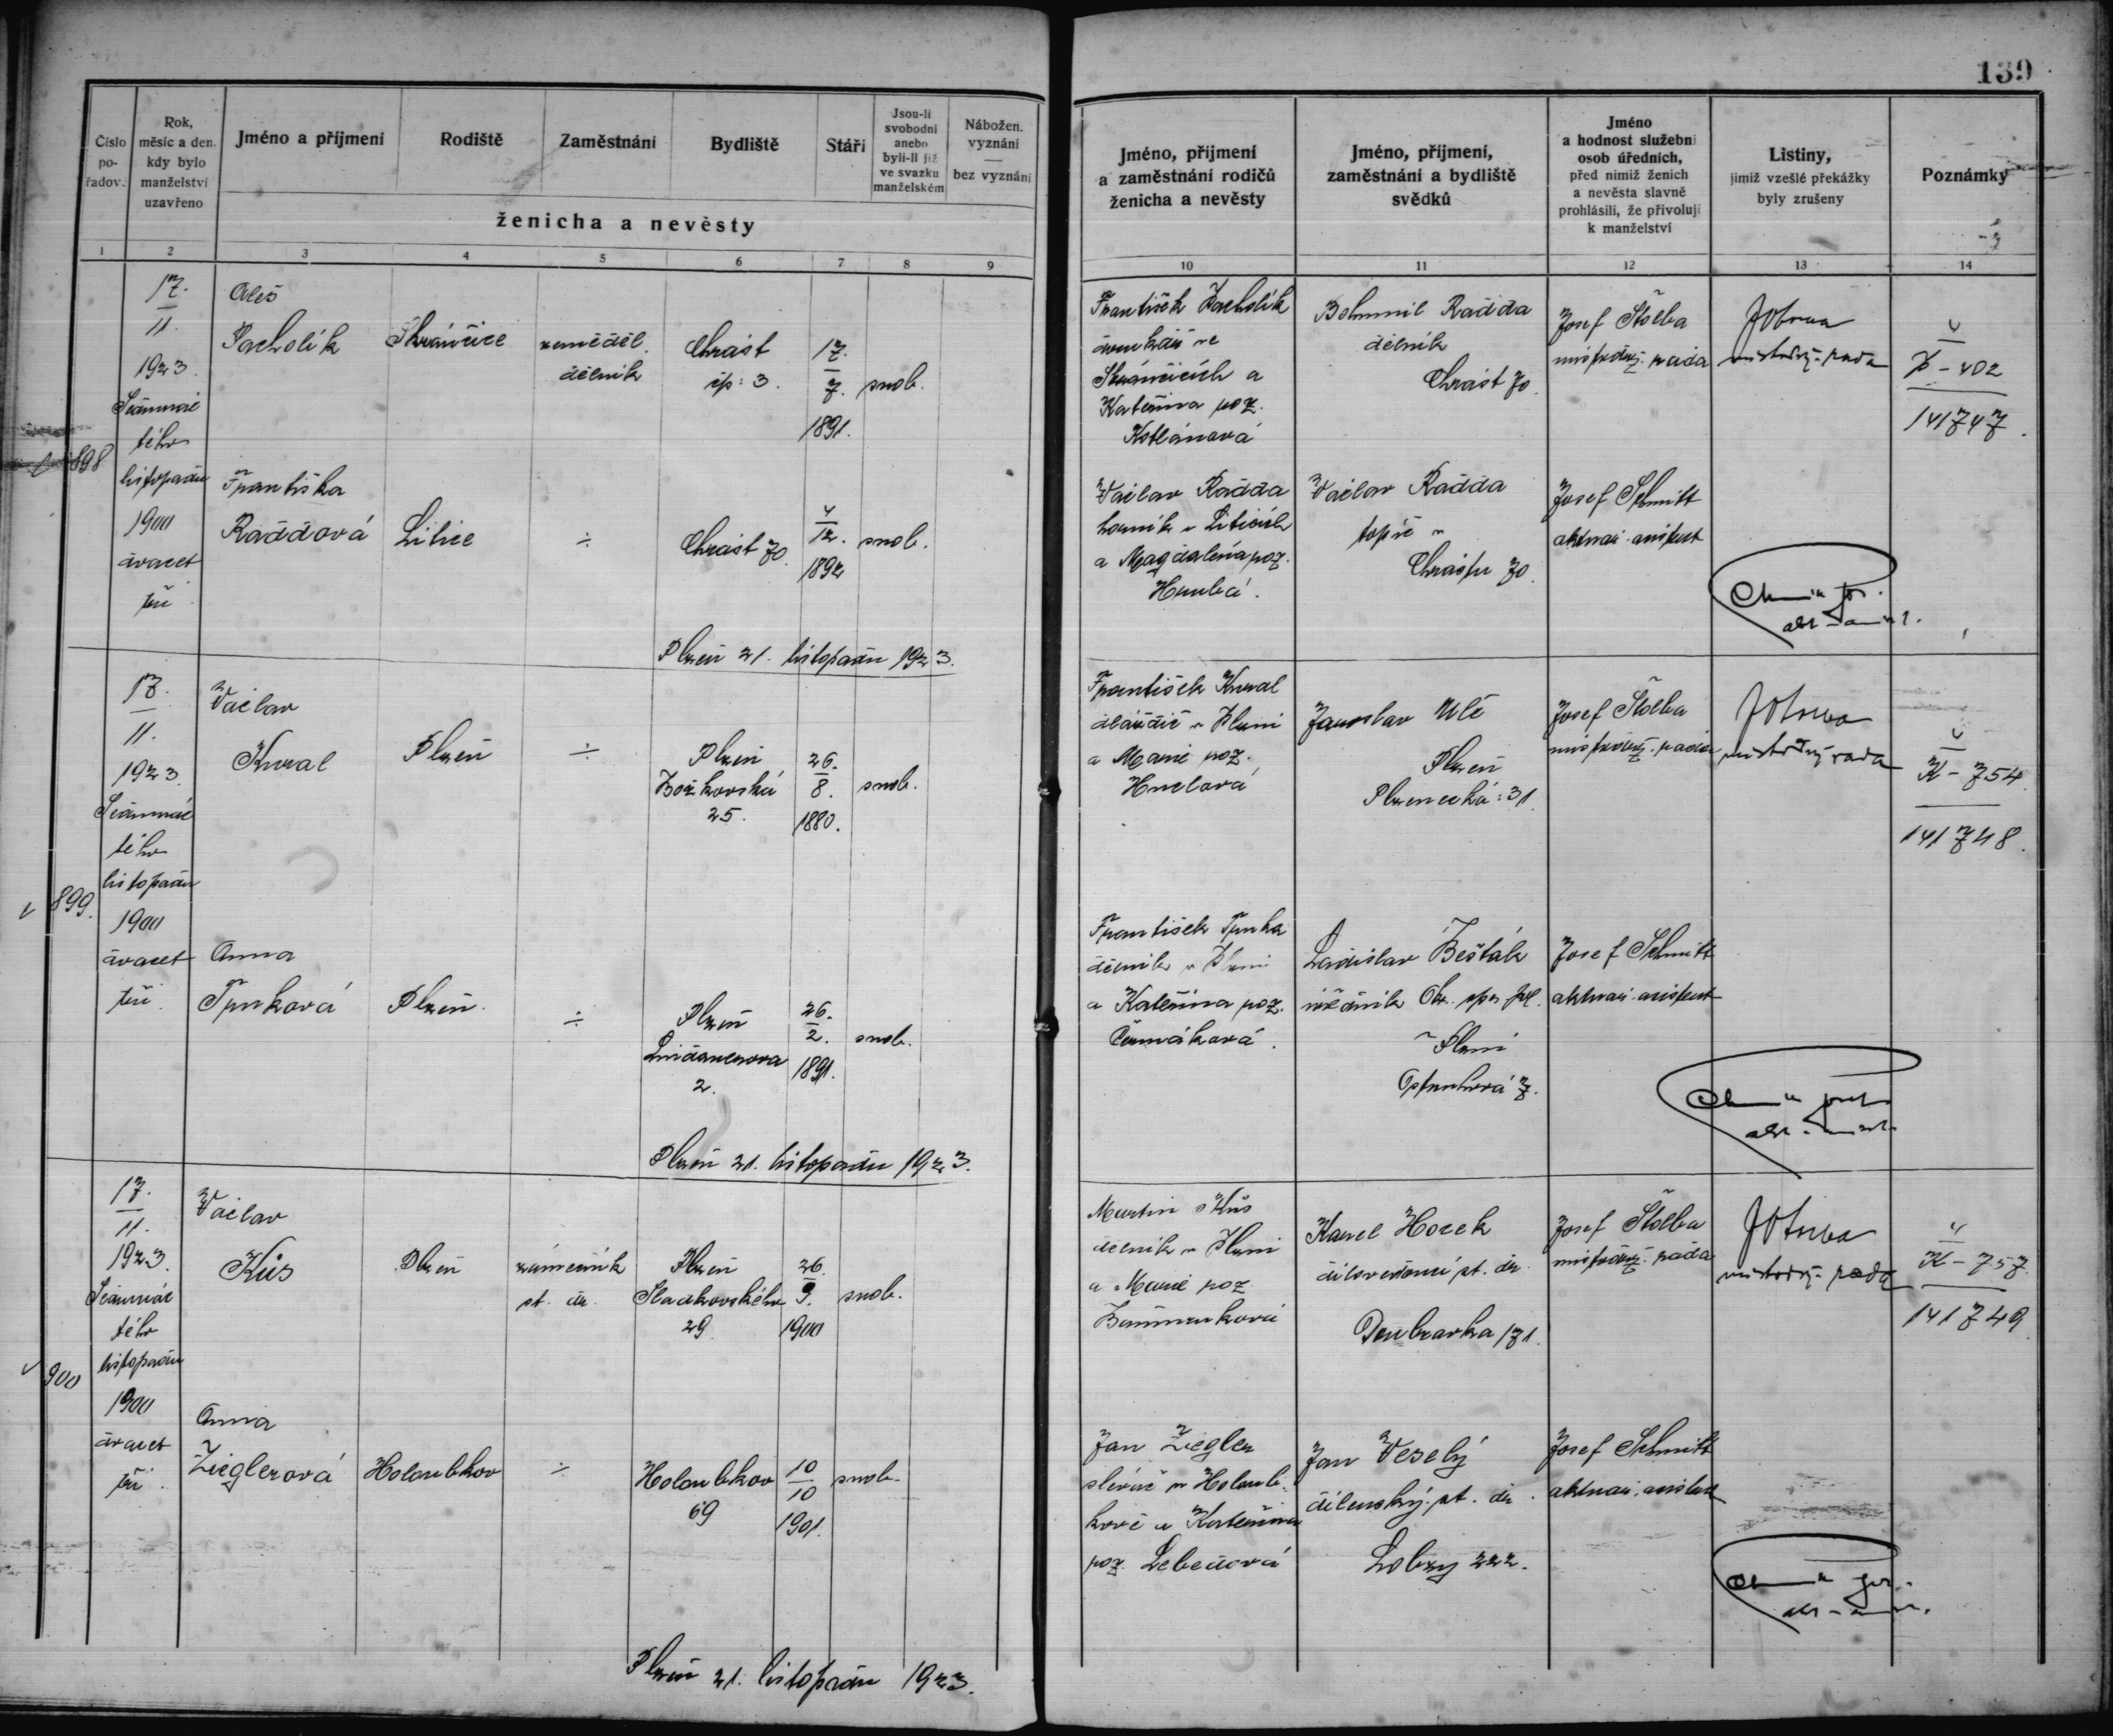 139
Číslo
po-
řadov.
Rok,
měsíc a den,
kdy bylo
manželství
uzavřeno
Jméno a příjmení
Rodiště
Zaměstnání
Bydliště
Stáří
Jsou-li
svobodni
anebo
byli-li již
ve svazku
manželském
Nábožen.
vyznání
bez vyznání
ženicha a nevěsty
Jméno, příjmení
a zaměstnání rodičů
ženicha a nevěsty
Jméno, příjmení,
zaměstnání a bydliště
svědků
Jméno
a hodnost služební
osob úředních,
před nimiž ženich
a nevěsta slavně
prohlásili, že přivolují
k manželství
Listiny,
jimiž vzešlé překážky
byly zrušeny
Poznámky
1 2 3 4 5 6 7 8 9 10 11 12 13 14
898
17.
11.
1923.
Sedmnác
tého
listopadu
1900
dvacet
tři.
Aleš
Pacholík
zeměděl.
dělník
Chrást
čp: 3.
17.
7.
1891.
svob.
František Pacholík
a
Kateřina roz.
Kotlánová
Bohumil Radda
dělník
Chrást 70
Josef Štolba
místodrž. rada
místodrž. rada
402
141747.
Františka
Raddová
Litice
÷
Chrást 70.
4
12.
1892
svob.
Václav Radda
horník v Liticích
a Magdalena roz.
Hrubá.
Václav Radda
topič v
Chrástu 70.
Josef Schmitt
aktuár. asistent
Plzeň 21. listopadu 1923.
899.
17.
11.
1923
Sedmnác
tého
listopadu
1900
dvacet
tři.
Václav
Plzeň
÷
Plzeň
Božkovská
25.
26.
8.
1880.
svob.
František
dlaždič v Plzni
a Marie roz.
Jaroslav Ulč
Plzeň
Plzenecká: 31.
Josef Štolba
místodrž. rada
místodržny rada
K - 754
141748.
Anna
Trnková
Plzeň.
÷
Plzeň
2.
26.
2.
1891.
svob.
František Trnka
dělník v Plzni
a Kateřina roz.
Čermáková.
Ladislav Bešták
úředník
v Plzni
7.
Josef Schmitt
aktuár. asistent
Plzeň 21. listopadu 1923.
900
17.
11.
1923.
Sedmnác
tého
listopadu
1900
dvacet
tři.
Václav
Kůs
Plzeň
zámečník
st. dr.
Plzeň
Sladkovského
29.
26.
9.
1900
svob.
Martin Kůs
dělník v Plzni
a Marie roz.
Karel Horek
dílovedoucí st. dr.
Doubravka 171.
Josef Štolba
místodrž. rada
místodrž. rada
K - 757
141749
Anna
Zieglerová
Holoubkov
÷
Holoubkov
69
10
10
1901.
svob.
Jan Ziegler
slévač v Holoub-
kově a Kateřina
roz. Lebedová
Jan Veselý
dílenský. st. dr.
Lobzy 222.
Josef Schmitt
aktuár. asistent
Plzeň 21. listopadu 1923.